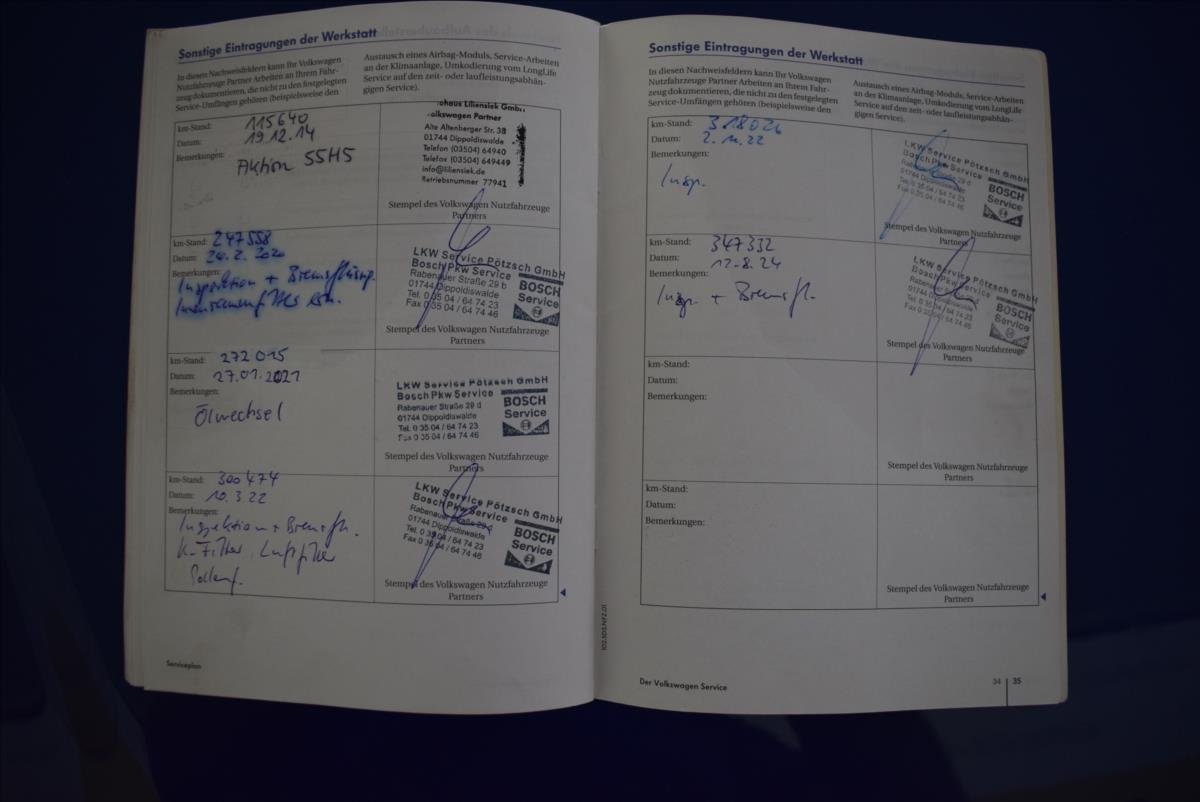 Sonstige Eintragungen der Werkstatt
In diesen Nachweisfeldern kann Ihr Volkswagen
Nutzfahrzeuge Partner Arbeiten an Ihrem Fahr-
zeug dokumentieren, die nicht zu den festgelegten
Service-Umfängen gehören (beispielsweise den
Austausch eines Airbag-Moduls, Service-Arbeiten
an der Klimaanlage, Umkodierung vom LongLife
Service auf den zeit- oder laufleistungsabhän-
gigen Service).
km-Stand: 115640
Datum: 19.12.14
Bemerkungen:
Aktion 55H5
ohaus Liliensiek GmbH
olkswagen Partner
Alte Altenberger Str. 38
01744 Dippoldiswalde
Telefon (03504) 64940
Telefax (03504) 649449
info@liliensiek.de
Betriebsnummer 77941
Stempel des Volkswagen Nutzfahrzeuge
Partners
km-Stand: 247558
Datum: 26.2.2020
Bemerkungen:
Inspektion + Bremsflüssig.
LKW Service Pötzsch GmbH
Bosch Pkw Service
Rabenauer Straße 29 b
01744 Dippoldiswalde
Tel. 0 35 04 / 64 74 23
Fax 0 35 04 / 64 74 46
BOSCH
Service
Stempel des Volkswagen Nutzfahrzeuge
Partners
km-Stand: 272 015
Datum: 27.01.2021
Bemerkungen:
Ölwechsel
LKW Service Pötzsch GmbH
Bosch Pkw Service
Rabenauer Straße 29 d
01744 Dippoldiswalde
Tel. 0 35 04 / 64 74 23
Fax 0 35 04 / 64 74 46
BOSCH
Service
Stempel des Volkswagen Nutzfahrzeuge
Partners
km-Stand: 300474
Datum: 10.3.22
Bemerkungen:
Inspektion + Bremsfl.
K-Filter, Luftfilter
LKW Service Pötzsch GmbH
Bosch Pkw Service
Rabenauer Straße 29 d
01744 Dippoldiswalde
Tel. 0 35 04 / 64 74 23
Fax 0 35 04 / 64 74 46
BOSCH
Service
Stempel des Volkswagen Nutzfahrzeuge
Partners
Serviceplan
102.5D3.NFZ.01
Sonstige Eintragungen der Werkstatt
In diesen Nachweisfeldern kann Ihr Volkswagen
Nutzfahrzeuge Partner Arbeiten an Ihrem Fahr-
zeug dokumentieren, die nicht zu den festgelegten
Service-Umfängen gehören (beispielsweise den
Austausch eines Airbag-Moduls, Service-Arbeiten
an der Klimaanlage, Umkodierung vom LongLife
Service auf den zeit- oder laufleistungsabhän-
gigen Service).
km-Stand: 318026
Datum: 2.11.22
Bemerkungen:
Insp.
LKW Service Pötzsch GmbH
Bosch Pkw Service
Rabenauer Straße 29 d
01744 Dippoldiswalde
Tel. 0 35 04 / 64 74 23
Fax 0 35 04 / 64 74 46
BOSCH
Service
Stempel des Volkswagen Nutzfahrzeuge
Partners
km-Stand: 347332
Datum: 12.8.24
Bemerkungen:
Insp. + Bremsfl.
LKW Service Pötzsch GmbH
Bosch Pkw Service
Rabenauer Straße 29 d
01744 Dippoldiswalde
Tel. 0 35 04 / 64 74 23
Fax 0 35 04 / 64 74 46
BOSCH
Service
Stempel des Volkswagen Nutzfahrzeuge
Partners
km-Stand:
Datum:
Bemerkungen:
Stempel des Volkswagen Nutzfahrzeuge
Partners
km-Stand:
Datum:
Bemerkungen:
Stempel des Volkswagen Nutzfahrzeuge
Partners
Der Volkswagen Service
34 35